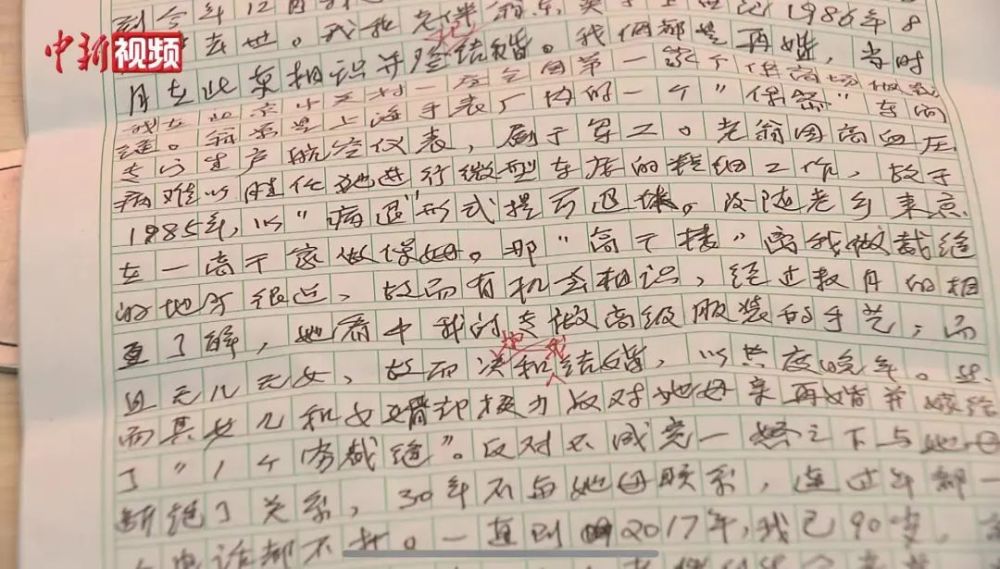 到今年12月
中新视频
去世。我和老伴 1986年8
月在北京相识并登结婚。我俩都是再婚，当时
我在北京 全国第一家
上海手表厂内的一个"保密"车间
专门生产航空仪表，属于军工。老翁因高血压
病难以胜任她进行微型车床的精细工作，故于
1985年，以"病退"形式提前退休。后随老乡来京
在一高干家做保姆。那"高干楼"离我做裁缝
的地方很近，故而有机会相识，经过数月的相
互了解，她看中我的专做高级服装的手艺；而
且无儿无女，故而决和结婚，以共度晚年。
她 我
而其女儿和女婿却极力反对她母亲再婚并嫁给
了"1个穷裁缝"。反对不成 之下与她
断绝了关系，30年不与她母联系，连过年都一
个电话都不打。一直到2017年，我已90岁，